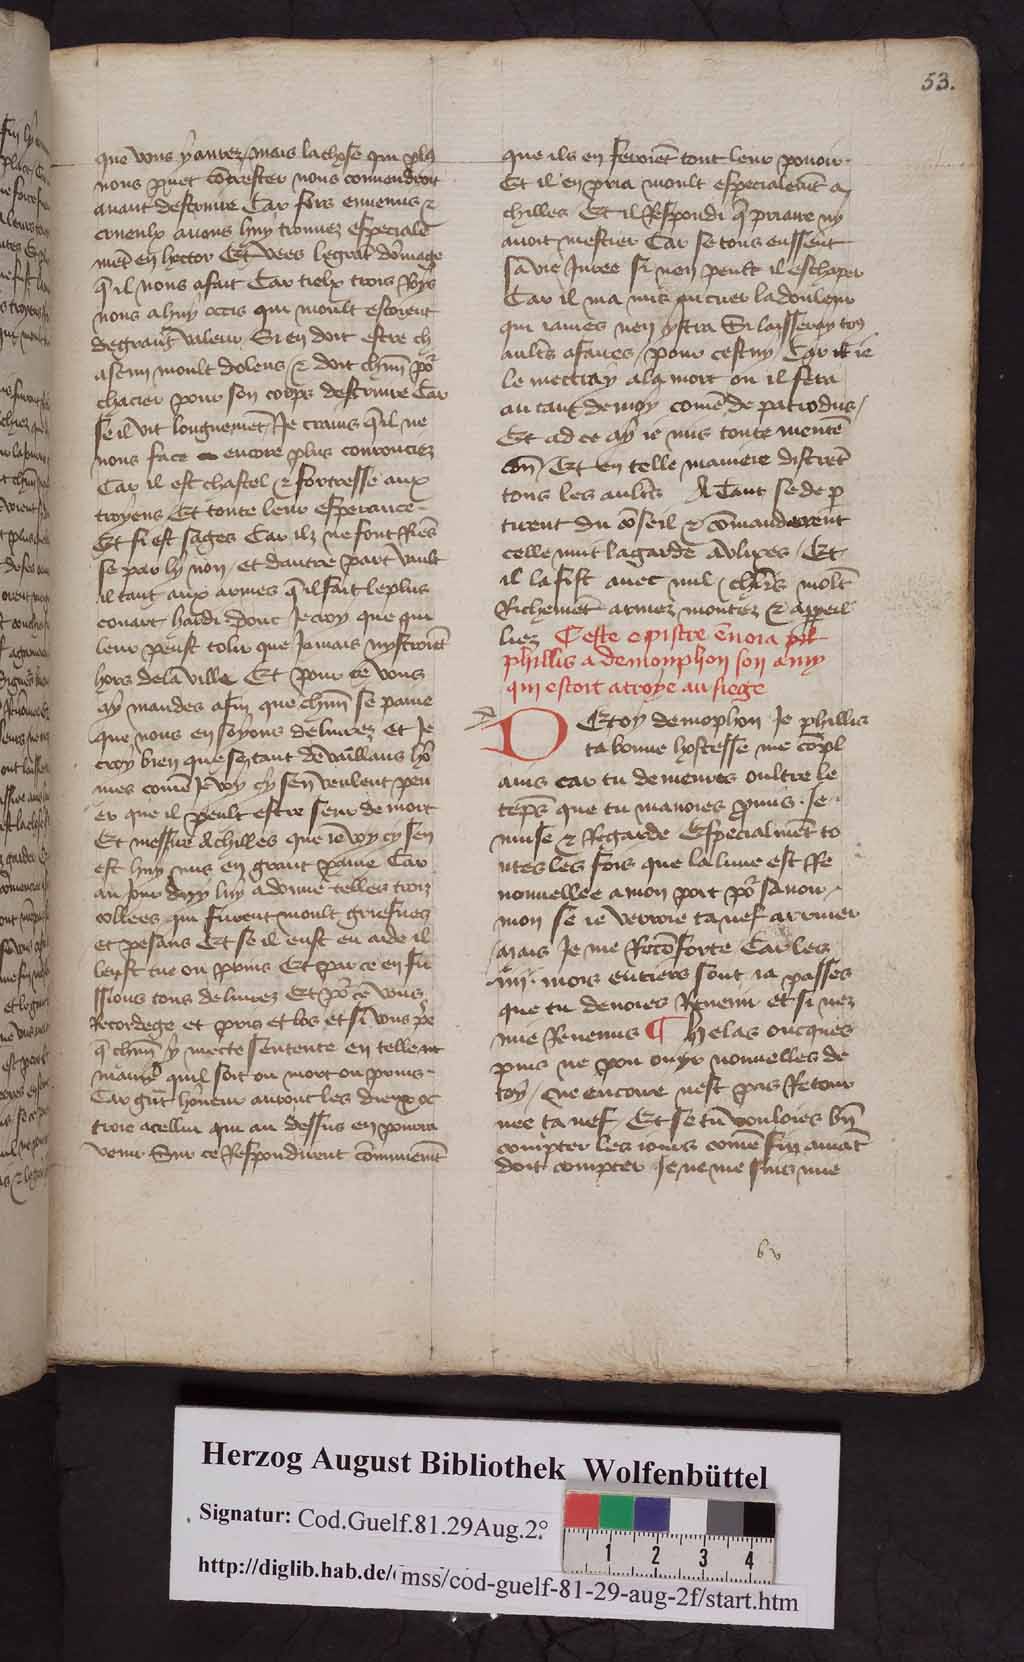 53.
que vous y aurez / mais la chose qui plus
nous puet contrester nous conuendroit
auant destruire Car fors ennemis et
crueulx auons huy trouuez especiale
ment en hector Et vees le grant domage
qe il nous a fait Car tielx trois Roys
nous a huy occis qui moult estoient
de grant valeur Si en doit estre ch
ascun moult dolens et doit chun por
chacier pour son corps destruire Car
se il vit longuement Je crains qe il ne
nous face encore plus courouciez
Car il est chastel et fortresse aux
troyens Et toute leur esperance
Et si est sages Car ilz ne font Riens
se par ly non / et dautre part vault
il tant aux armes qe il fait le plus
couart hardi donc Je croy que qui
leur peust tolir que Jamais nystroiet
hors de la ville Et pour ce vous
ay mandes afin que chun se paine
que nous en soyons deliurez et Je
croy bien que se tant de vaillans ho
mes come Je voy cy sen veulent pen
er que il peult estre seur de mort
Et messire Achilles que ie voy cy sen
est huy mis en grant paine Car
au jour duy luy a donne telles troiz
collees qui furent moult griefues
et pesans Et se il eust eu aide il
leust tue ou prins Et par ce en fu
ssions tous deliurez Et por ce vous
Recordege et pris et los et si vous pe
qe chun y mecte sentente en telle
maniere quil soit ou mort ou prins
Car gnt honeur auront les dieux oc
troie a cellui qui au dessus en pourra
venir Sur ce Respondirent comunemt
que ils en feroiet tout leur pouoir
Et il en pria moult especialemt a
chilles Et il Respondi qe priaire ny
auoit mestier Car se tous eussent
sa vie Juree si nen peult il eschaper
Car il ma mis au cuer la douleur
qui iames nen ystra Si laisseray toz
aultres afaires / pour cestuy / Car ie
le mectray a la mort ou il fera
au tant de moy come de patrodus /
Et ad ce ay ie mis toute mente
con / Et en telle maniere distret
tous les aultrs A Tant se de p
tirent du coseil et comanderent
celle nuit la garde a vlixes / Et
il la fist auec mil / chlrs molt
Richemet armez montez et appeil
liez Ceste epistre enuoia
phillis a demonphon son amy
qui estoit a troye au siege
DE toy demophon Je phillis
ta bonne hostesse me compl
ains car tu demeures oultre le
temps que tu mauoies promis . Je
muse et Regarde Especialmet to
utes les fois que la lune est Re
nouuellee a mon port por sauoir /
mon se ie verroie ta nef arriuer
Mais Je me Reconforte Car les
.iiii. mois entiers sont ia passes
que tu deuoies Reuenir et si nez
mie Reuenus ¶ Helas oncques
puis ne pou ouyr nouuelles de
toy / Ne encore nest pas Retour
nee ta nef / Et se tu vouloies bn
compter les iours come fin amat
doit compter Je ne me suis mie
Herzog August Bibliothek Wolfenbüttel
Signatur: Cod.Guelf.81.29Aug.2°
http://diglib.hab.de/mss/cod-guelf-81-29-aug-2f/start.htm
1 2 3 4